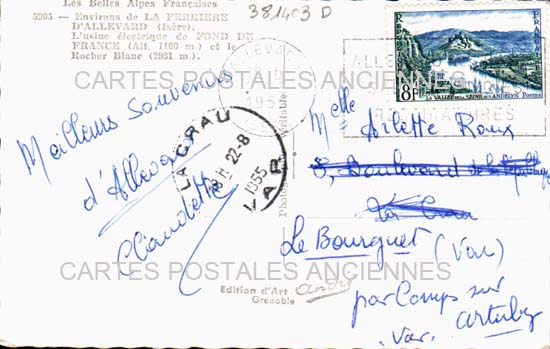 Les Belles Alpes Françaises
5905 - Environs de LA FERRIERE
D'ALLEVARD (Isère).
L'usine électrique de FOND DE
FRANCE (Alt. 1100 m.) et le
Rocher Blanc (2931 m.).
381403 D
REPUBLIQUE FRANÇAISE
8F
LA VALLEE DE LA SEINE AUX ANDELYS
Postes
CARTES POSTALES ANCIENNES
Meilleurs Souvenirs
d'Allevard
Claudette
LA CRAU
18H 22-8
1955
VAR
Melle Arlette Roux
8, Boulevard de la République
La Crau
Le Bourguet (Var)
par Comps sur
Artuby
Var.
CARTES POSTALES ANCIENNES
Edition d'Art
Grenoble